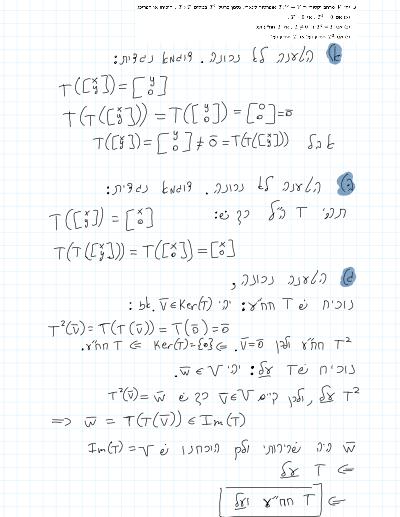 א הטענה לא נכונה. דוגמא נגדית:
T([x y]) = [y 0]
T(T([x y])) = T([y 0]) = [0 0] = 0̄
אבל T([x y]) = [y 0] ≠ 0̄ = T(T([x y]))
ב הטענה לא נכונה. דוגמא נגדית:
תהי T הע"ל כך ש: T([x y]) = [x 0]
T(T([x y])) = T([x 0]) = [x 0]
הטענה נכונה,
נוכיח ש T חח"ע: יהי v̄ ∈ Ker(T). אז:
T²(v̄) = T(T(v̄)) = T(0̄) = 0̄
T² חח"ע ולכן v̄ = 0̄. <= Ker(T) = {0} <= T חח"ע.
נוכיח ש T על: יהי w̄ ∈ V.
T² על, ולכן קיים v̄ ∈ V כך ש T²(v̄) = w̄
=> w̄ = T(T(v̄)) ∈ Im(T)
w̄ היה שרירותי ולכן הוכחנו ש Im(T) = V
<= T על
<= T חח"ע ועל